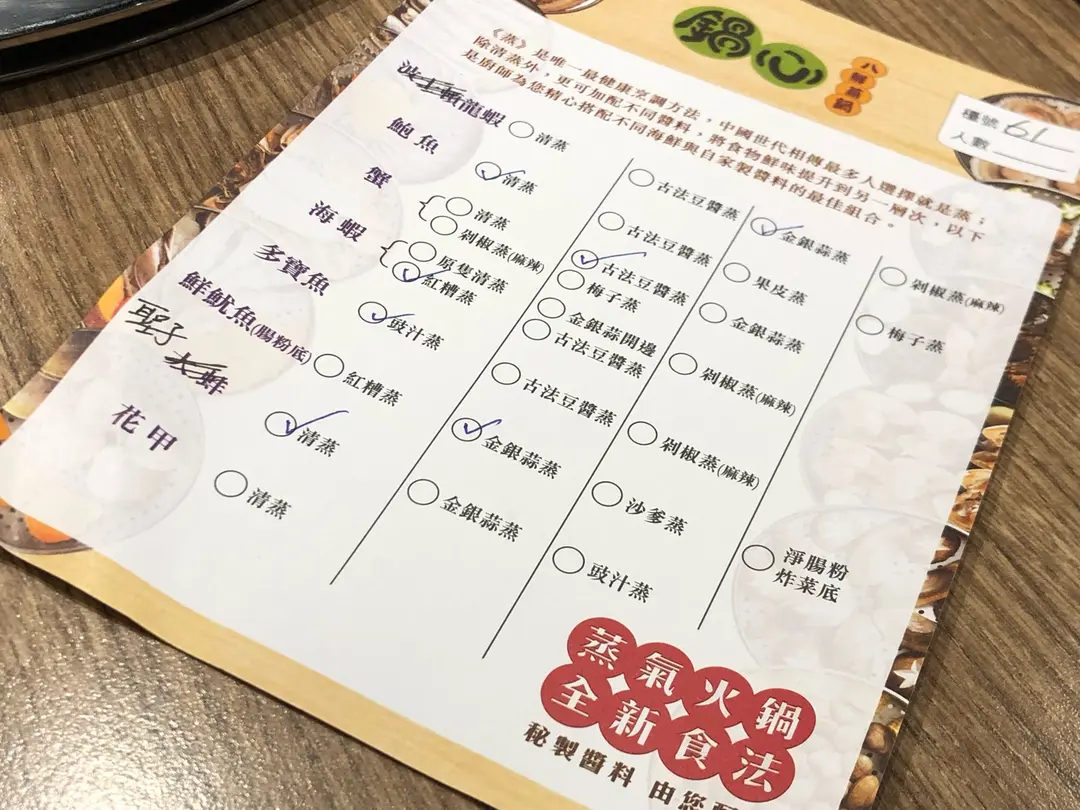 鍋心
八鮮蒸鍋
檯號 61
人數
《蒸》是唯一最健康烹調方法，中國世代相傳最多人選擇就是蒸；
除清蒸外，更可加配不同醬料，將食物鮮味提升到另一層次，以下
是廚師為您精心搭配不同海鮮與自家製醬料的最佳組合。
波士頓龍蝦 清蒸 古法豆醬蒸 金銀蒜蒸 剁椒蒸(麻辣)
鮑魚 清蒸 古法豆醬蒸 果皮蒸 梅子蒸
蟹 清蒸 古法豆醬蒸 金銀蒜蒸
剁椒蒸(麻辣) 梅子蒸
海蝦 原隻清蒸 金銀蒜開邊 剁椒蒸(麻辣)
紅糟蒸 古法豆醬蒸
多寶魚 豉汁蒸 古法豆醬蒸 剁椒蒸(麻辣)
鮮魷魚(腸粉底) 紅糟蒸 金銀蒜蒸 沙爹蒸
聖子
大蚌 清蒸 金銀蒜蒸 豉汁蒸 淨腸粉
炸菜底
花甲 清蒸
蒸氣火鍋
全新食法
秘製醬料 由您